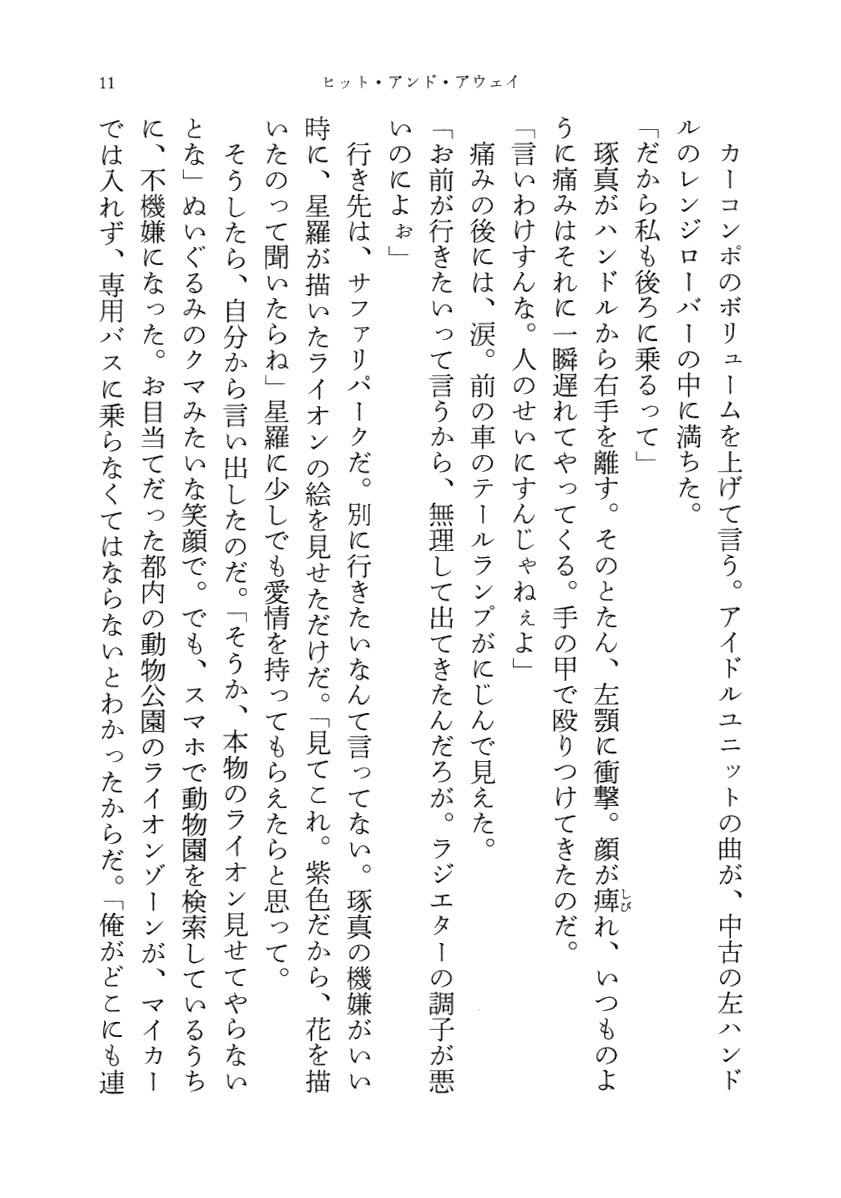 11
ヒット・アンド・アウェイ
カーコンポのボリュームを上げて言う。アイドルユニットの曲が、中古の左ハンド
ルのレンジローバーの中に満ちた。
「だから私も後ろに乗るって」
琢真がハンドルから右手を離す。そのとたん、左顎に衝撃。顔が痺れ、いつものよ
しび
うに痛みはそれに一瞬遅れてやってくる。手の甲で殴りつけてきたのだ。
「言いわけすんな。人のせいにすんじゃねぇよ」
痛みの後には、涙。前の車のテールランプがにじんで見えた。
「お前が行きたいって言うから、無理して出てきたんだろが。ラジエターの調子が悪
いのによぉ」
行き先は、サファリパークだ。別に行きたいなんて言ってない。琢真の機嫌がいい
時に、星羅が描いたライオンの絵を見せただけだ。「見てこれ。紫色だから、花を描
いたのって聞いたらね」星羅に少しでも愛情を持ってもらえたらと思って。
そうしたら、自分から言い出したのだ。「そうか、本物のライオン見せてやらない
とな」ぬいぐるみのクマみたいな笑顔で。でも、スマホで動物園を検索しているうち
に、不機嫌になった。お目当てだった都内の動物公園のライオンゾーンが、マイカー
では入れず、専用バスに乗らなくてはならないとわかったからだ。「俺がどこにも連